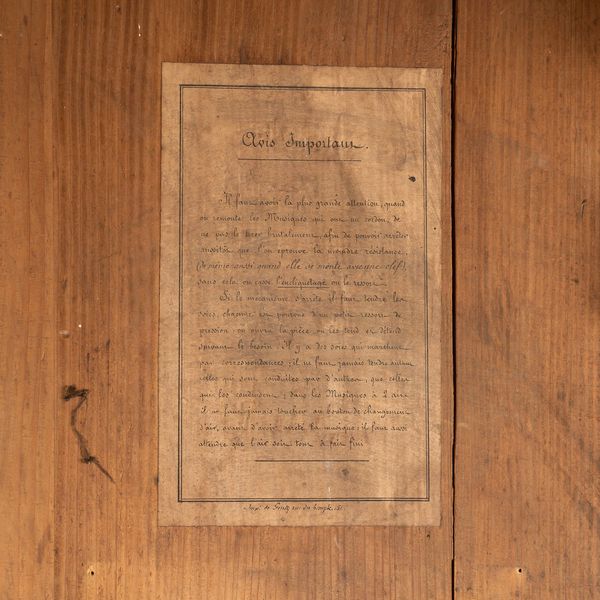 Avis Important.
Il faut avoir la plus grande attention, quand
on remonte les Musiques qui ont un cordon, de
ne pas le tirer brutalement, afin de pouvoir arrêter
aussitôt que l'on éprouve la moindre résistance,
(de même aussi quand elle se monte avec une clef)
sans cela on casse l'encliquetage ou le ressort.
Si le mécanisme s'arrête il faut tendre les
soies, chacune est pourvue d'un petit ressort de
pression; on ouvre la pièce, on les tend et détend
suivant le besoin. Il y a des soies qui marchent
par correspondances; il ne faut jamais tendre autant
celles qui sont conduites par d'autres, que celles
qui les conduisent; dans les Musiques à 2 airs
Il ne faut jamais toucher au bouton de changement
d'air, avant d'avoir arrêté la musique; il faut aussi
attendre que l'air soit tout à fait fini
Imp. de rue du Temple,